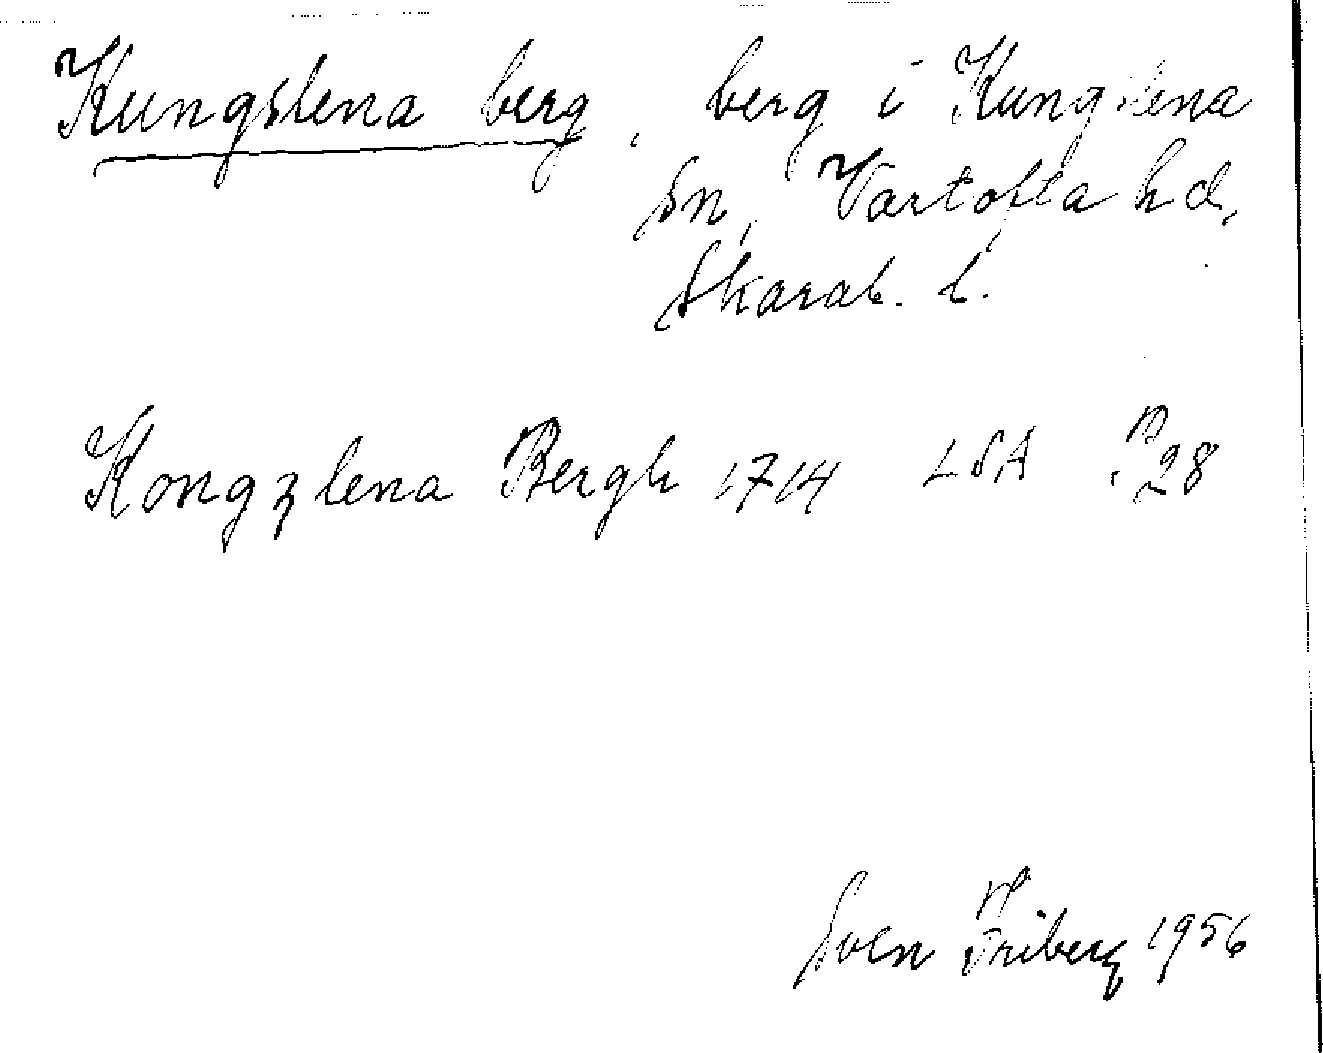 Kungslena berg, berg i Kungslena
sn, Vartofta hd,
Skarab. l.
Kongzlena Bergh 1714 LSA P28
Sven Friberg 1956